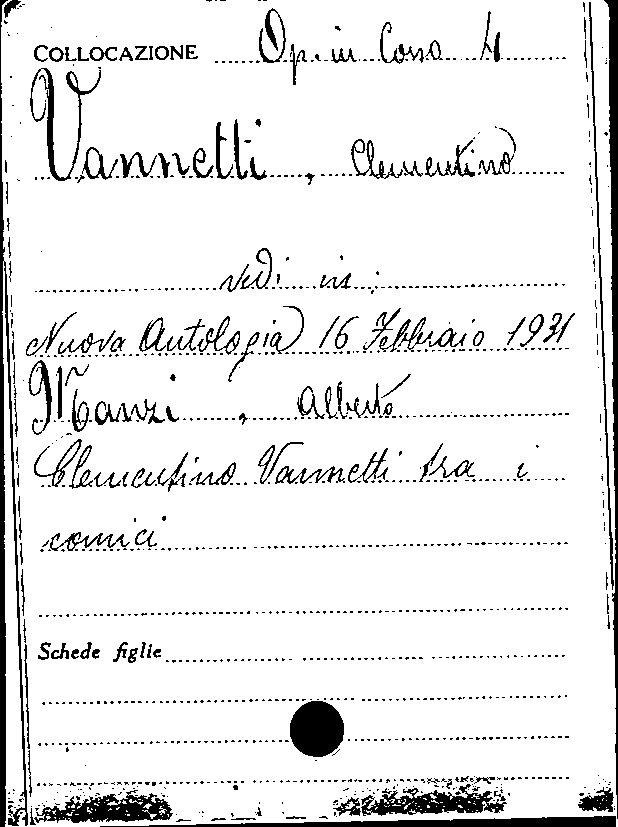 COLLOCAZIONE Op. in Cons 4
Vannetti, Clementino
vedi in:
Nuova Antologia 16 Febbraio 1931
Manzi, Alberto
Clementino Vannetti tra i
comici
Schede figlie